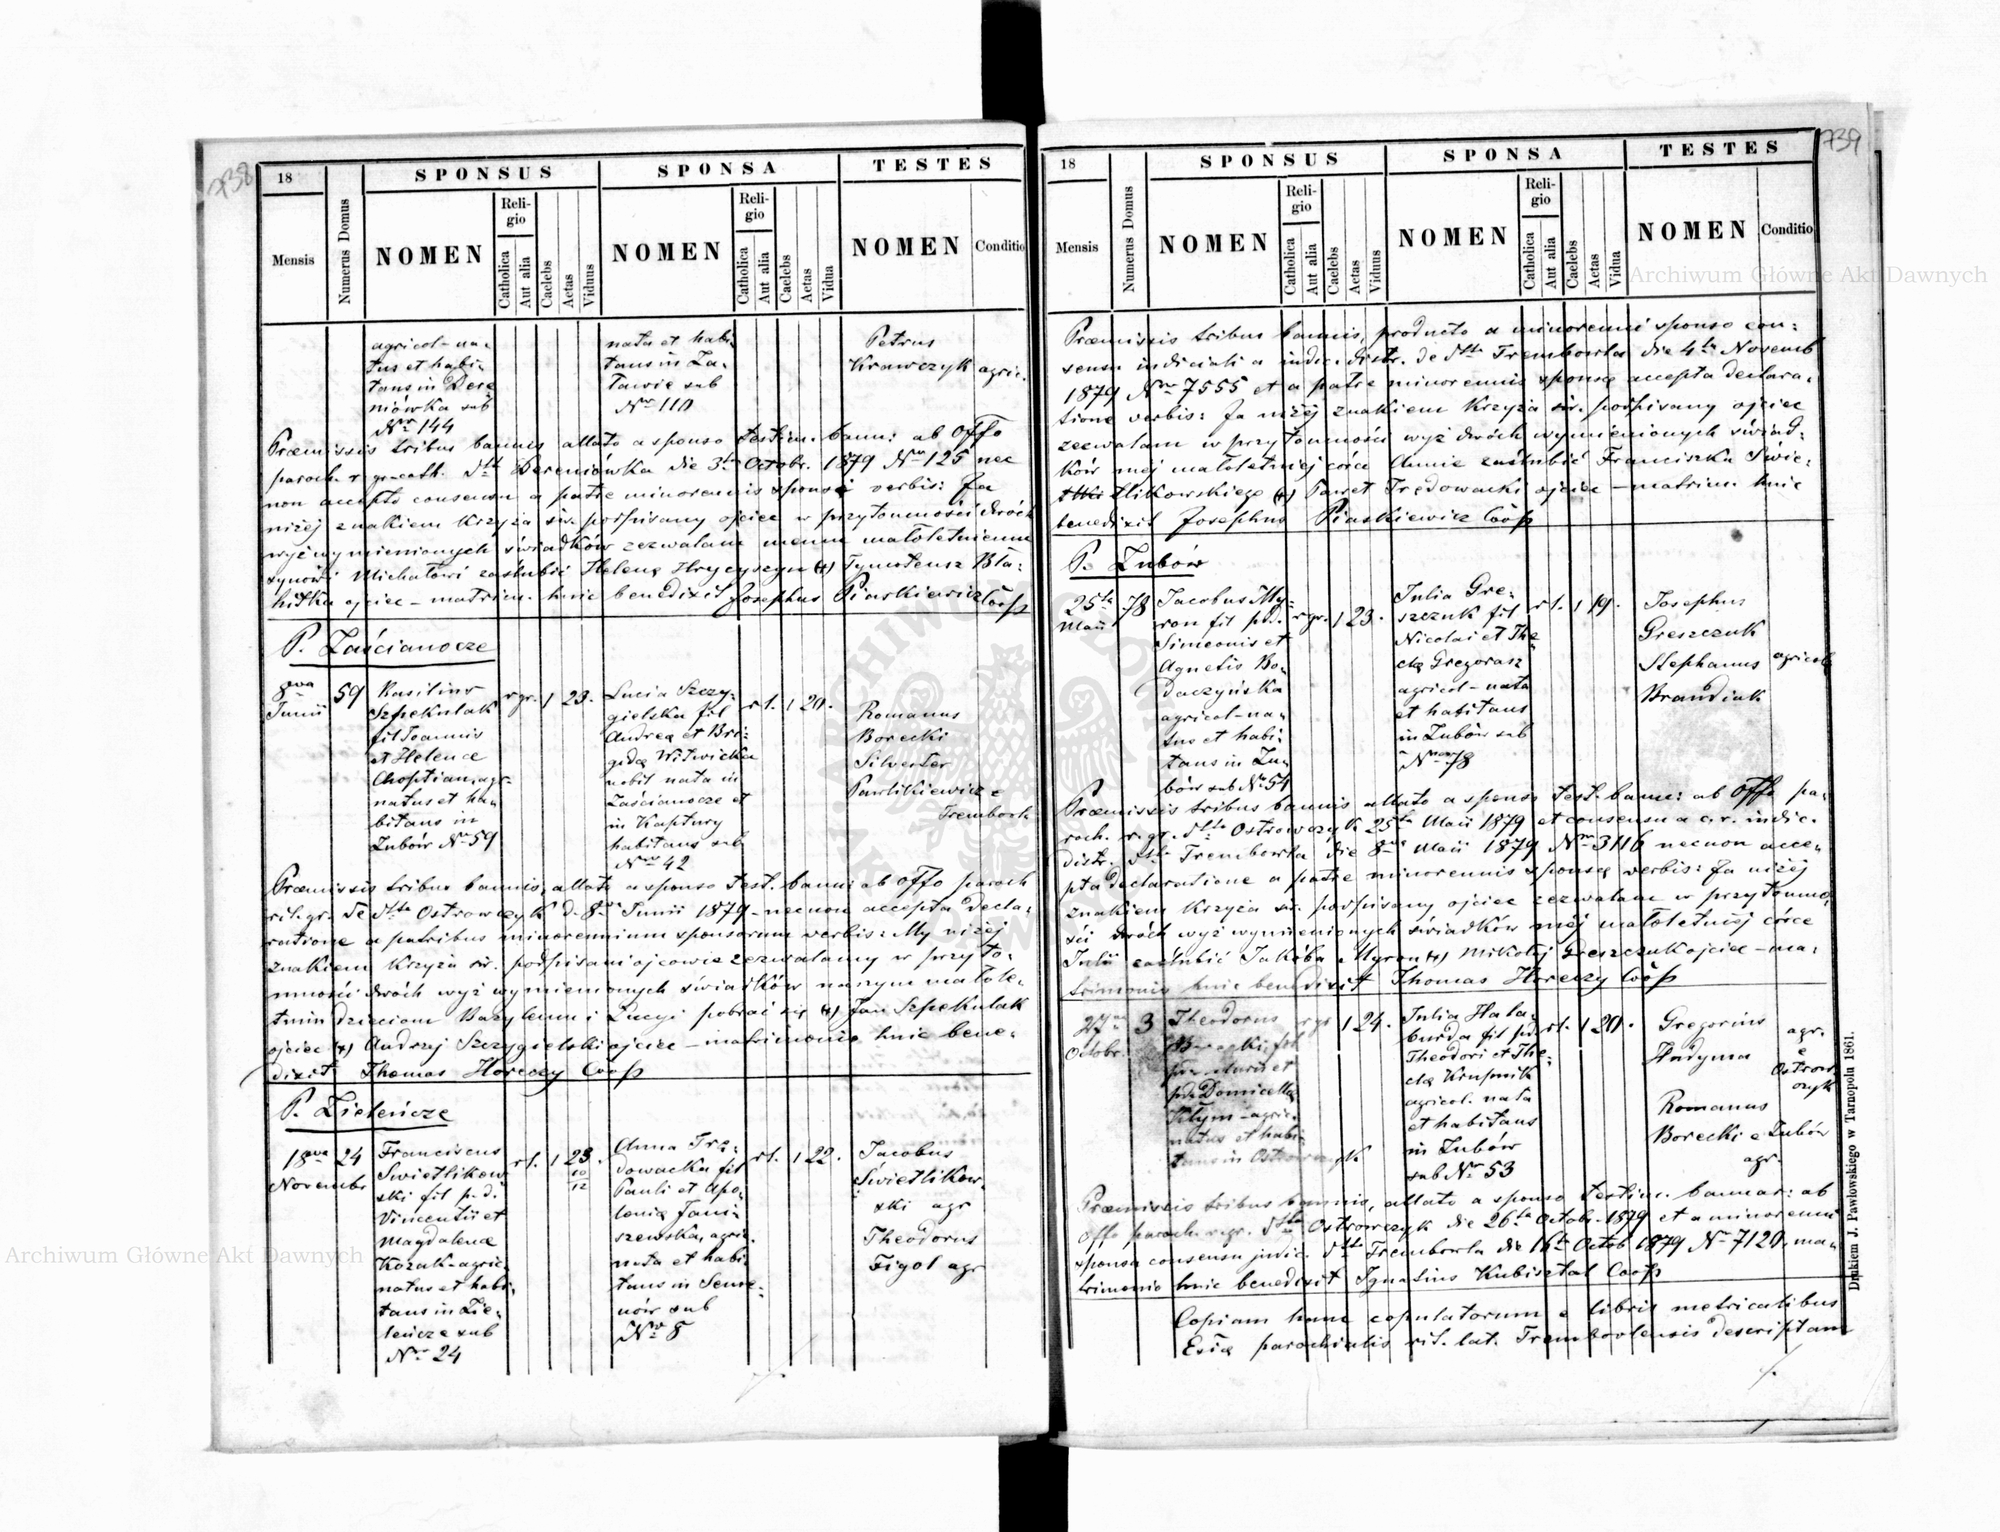 738
18
SPONSUS
SPONSA
TESTES
Mensis
Numerus Domus
NOMEN
Religio
Catholica
Aut alia
Caelebs
Aetas
Viduus
NOMEN
Religio
Catholica
Aut alia
Caelebs
Aetas
Vidua
NOMEN
Conditio
agricol-na-
tus et habi-
tans in Dere
niówka sub
Nr 144
nata et habi-
tans in Ła-
tawie sub
Nr 110
Petrus
Krawczyk agric.
Præmissis tribus bannis allato a sponso testim. bann: ab Offo
paroch. r. gr. cath. dtto Dereniówka die 3tia Octobr. 1879 Nro 125 nec
non accepto consensu a patre minorennis sponsi verbis: Ja
niżej znakiem krzyża św. podpisany ojciec w przytomności dwóch
wyż wymienionych świadków zezwalam memu małoletniemu
synowi Michałowi zaślubić Helenę Hrycyszyn (+) Tymoteusz Bła-
hitka ojciec - matrim. hnic benedixit Josephus Piaskiewicz Coop
P. Zaścianocze
8va
Junii
59
Basilius
Szpekulak
fil Joannis
et Helenæ
Choptian, agr-
natus et ha-
bitans in
Zubów No 59
r gr. 1 23.
Lucia Szczy-
gielska fil
Andreæ et Bri-
gidæ Witwicka
nobil nata in
Zaścianocze et
in Kaptury
habitans sub
Nro 42
r l. 1 20.
Romanus
Borecki
Silvester
Pawlikiewicz e
Trembowl.
Præmissis tribus bannis, allato a sponso test. bann: ab offo paroch
rit. gr. de dtto Ostrowczyk d. 8va Junii 1879 - necnon accepta decla-
ratione a patribus minorennium sponsorum verbis: My niżej
znakiem krzyża św. podpisani ojcowie zezwalamy w przyto-
mności dwóch wyż wymienionych świadków naszym małole-
tnim dzieciom Bazylemu i Lucyi pobrać się (+) Jan Szpekulak
ojciec (+) Andrzej Szczygielski ojciec - matrimonio hnic bene-
dixit Thomas Horeczy Coop
P. Zieleńcze
18va
Novembr
24
Franciscus
Swietlikow-
ski fil p.d.
Vincentii et
Magdalenæ
Kozak-agric-
natus et habi-
tans in Zie-
leńcze sub
Nr 24
r l. 1 23.
10
12
Anna Trę-
dowacka fil
Pauli et Apo-
loniæ Jani-
szewska, agric.
nata et habi-
tans in Seme-
nów sub
Nro 8
r l. 1 22.
Jacobus
Świetlikow-
ski agr
Theodorus
Figol agr
739
18
SPONSUS
SPONSA
TESTES
Mensis
Numerus Domus
NOMEN
Religio
Catholica
Aut alia
Caelebs
Aetas
Viduus
NOMEN
Religio
Catholica
Aut alia
Caelebs
Aetas
Vidua
NOMEN
Conditio
Præmissis tribus bannis, producto a minorenni sponso con-
sensu iudiciali a iudic. distr. de dtto Trembowla die 4ta Novemb
1879 Nro 7555 et a patre minorennis sponsæ accepta declara-
tione verbis: Ja niżej znakiem krzyża św. podpisany ojciec
zezwalam w przytomności wyż dwóch wymienionych świad-
ków mej małoletniej córce Annie zaślubić Franciszka Świe-
tlikowskiego (+) Paweł Trędowacki ojciec - matrim. hnic
benedixit Josephus Piaskiewicz Coop
P. Zubów
25ta
Maii
78
Jacobus My-
ron fil p.d.
Simeonis et
Agnetis Bo-
daczyńska
agricol-na-
tus et habi-
tans in Zu-
bów sub No 54
r gr. 1 23.
Julia Gre-
szczuk fil
Nicolai et The
clæ Gregorasz
agricol-nata
et habitans
in Zubów sub
Nro 78
r l. 1 19.
Josephus
Greszczuk
Stephanus agricolæ
Brandiak
Præmissis tribus bannis allato a sponso test. bann: ab Offo pa-
roch. r. gr. dtto Ostrowczyk 25ta Maii 1879 et consensu a c.r. iudic.
distr. dtto Trembowla die 8va Maii 1879 Nro 3116 necnon acce-
pta declaratione a patre minorennis sponsæ verbis: Ja niżej
znakiem krzyża św. podpisany ojciec zezwalam w przytomno-
ści dwóch wyż wymienionych świadków mej małoletniej córce
Julii zaślubić Jakóba Myron (+) Mikołaj Greszczuk ojciec - ma-
trimonio hnic benedixit Thomas Horeczy Coop
27ma
Octobr.
3
Theodorus
Borecki fil
et
pd. Domicellæ
Kłym-agric.
natus et habi-
tans in Ostrowczyk
r gr 1 24.
Julia Hała-
burda fil pd.
Theodori et The-
clæ Krupnik
agricol. nata
et habitans
in Zubów
sub Nr 53
r l. 1 20.
Gregorius agr.
Hudyma e
Ostrow
czyk
Romanus
Borecki e Zubów
agr.
Præmissis tribus bannis, allato a sponso testim. bannar: ab
offo paroch. r. gr. dtto Ostrowczyk die 26ta Octobr. 1879 et a minorenni
sponsa consensu judic. dtto Trembowla die 16ta Octob 1879 Nr 7120, ma-
trimonio hnic benedixit Ignatius Kubisztal Coop
Copiam hanc copulatorum e libris metricalibus
Eccliæ parochialis rit. lat. Trembovlensis descriptam
Drukiem J. Pawłowskiego w Tarnopolu 1861.
Archiwum Główne Akt Dawnych
Archiwum Główne Akt Dawnych
ARCHIWUM GŁÓWNE AKT DAWNYCH